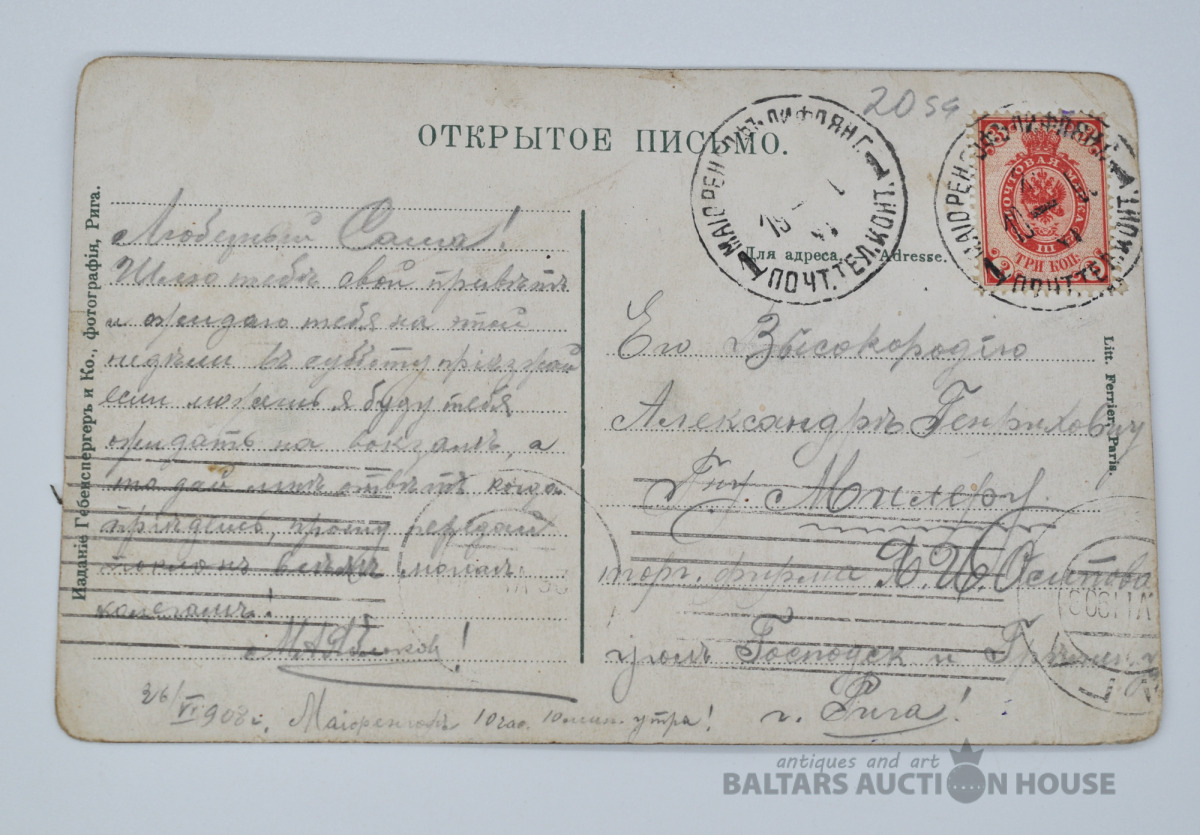 2059
ОТКРЫТОЕ ПИСЬМО.
МАІОРЕНГОФЪ ЛИФЛЯН.Г.
ПОЧТ.ТЕЛ.КОНТ.
МАІОРЕНГОФЪ ЛИФЛЯН.Г.
ПОЧТ.ТЕЛ.КОНТ.
ПОЧТОВАЯ МАРКА
III
ТРИ КОП.
Для адреса. Adresse.
Изданіе Гебенспергеръ и Ко., фотографія, Рига.
Litt. Ferrier, Paris.
Любезный Саша!
Шлю тебѣ свой привѣтъ
и ожидаю тебя на этой
недѣли въ субботу пріѣзжай
если можешь я буду тебя
ожидать на вокзалѣ, а
то дай мнѣ отвѣтъ когда
пріѣдешь, прошу передай
поклонъ всѣмъ моимъ
колегамъ!
26/VI 908 г. Маіоренгофъ 10 час. 10 мин. утра!
Его Высокородію
Александръ Генриховичу
Гну. Милеру.
торг. фирма Я. И. Осипова
уголъ Господск и
г. Рига!
antiques and art
BALTARS AUCTION HOUSE